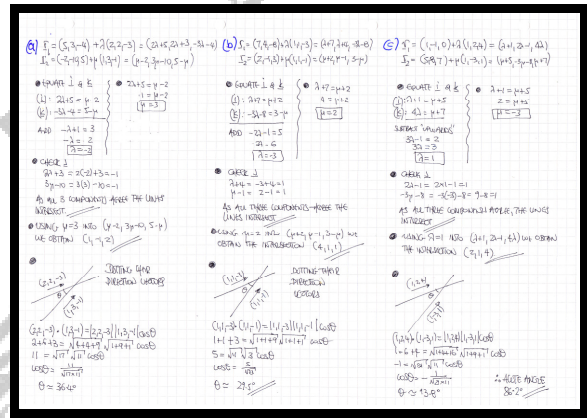 (a) r₁ = (5,3,-4) + λ(2,2,-3) = (2λ+5, 2λ+3, -3λ-4)
r₂ = (-2,-10,5) + μ(1,3,-1) = (μ-2, 3μ-10, 5-μ)
● EQUATE i & k
(i): 2λ+5 = μ-2
(k): -3λ-4 = 5-μ
ADD -λ+1 = 3
-λ = 2
λ = -2
● 2λ+5 = μ-2
1 = μ-2
μ = 3
● CHECK j
2λ+3 = 2(-2)+3 = -1
3μ-10 = 3(3)-10 = -1
AS ALL 3 COMPONENTS AGREE THE LINES
INTERSECT
● USING μ=3 INTO (μ-2, 3μ-10, 5-μ)
WE OBTAIN (1,-1,2)
(2,2,-3)
θ
(1,3,-1)
DOTTING THEIR
DIRECTION VECTORS
(2,2,-3)·(1,3,-1) = |2,2,-3||1,3,-1|cosθ
2+6+3 = √4+4+9 √1+9+1 cosθ
11 = √17 √11 cosθ
cosθ = 11/√17×11
θ ≃ 36.4°
(b) r₁ = (7,4,-8) + λ(1,1,-3) = (λ+7, λ+4, -3λ-8)
r₂ = (2,-1,3) + μ(1,1,-1) = (μ+2, μ-1, 3-μ)
● EQUATE i & k
(i): λ+7 = μ+2
(k): -3λ-8 = 3-μ
ADD -2λ-1 = 5
-2λ = 6
λ = -3
● λ+7 = μ+2
4 = μ+2
μ = 2
● CHECK j
λ+4 = -3+4 = 1
μ-1 = 2-1 = 1
AS ALL THREE COMPONENTS AGREE THE
LINES INTERSECT
● USING μ=2 INTO (μ+2, μ-1, 3-μ) WE
OBTAIN THE INTERSECTION (4,1,1)
(1,1,-3)
θ
(1,1,-1)
DOTTING THEIR
DIRECTION
VECTORS
(1,1,-3)·(1,1,-1) = |1,1,-3||1,1,-1|cosθ
1+1+3 = √1+1+9 √1+1+1 cosθ
5 = √11 √3 cosθ
cosθ = 5/√33
θ ≃ 29.5°
(c) r₁ = (1,-1,0) + λ(1,2,4) = (λ+1, 2λ-1, 4λ)
● EQUATE i & k
(i): λ+1 = μ+5
(k): 4λ = μ+7
SUBTRACT "UPWARDS"
3λ-1 = 2
3λ = 3
λ = 1
● λ+1 = μ+5
2 = μ+5
μ = -3
● CHECK j
2λ-1 = 2×1-1 = 1
-3μ-8 = -3(-3)-8 = 9-8 = 1
AS ALL THREE COMPONENTS AGREE, THE LINES
INTERSECT
● USING λ=1 INTO (λ+1, 2λ-1, 4λ) WE OBTAIN
THE INTERSECTION (2,1,4)
(1,2,4)
θ
(1,-3,1)
(1,2,4)·(1,-3,1) = |1,2,4||1,-3,1|cosθ
1-6+4 = √1+4+16 √1+9+1 cosθ
-1 = √21 √11 cosθ
cosθ = -1/√21×11
θ ≃ 93.8°
∴ ACUTE ANGLE
86.2°